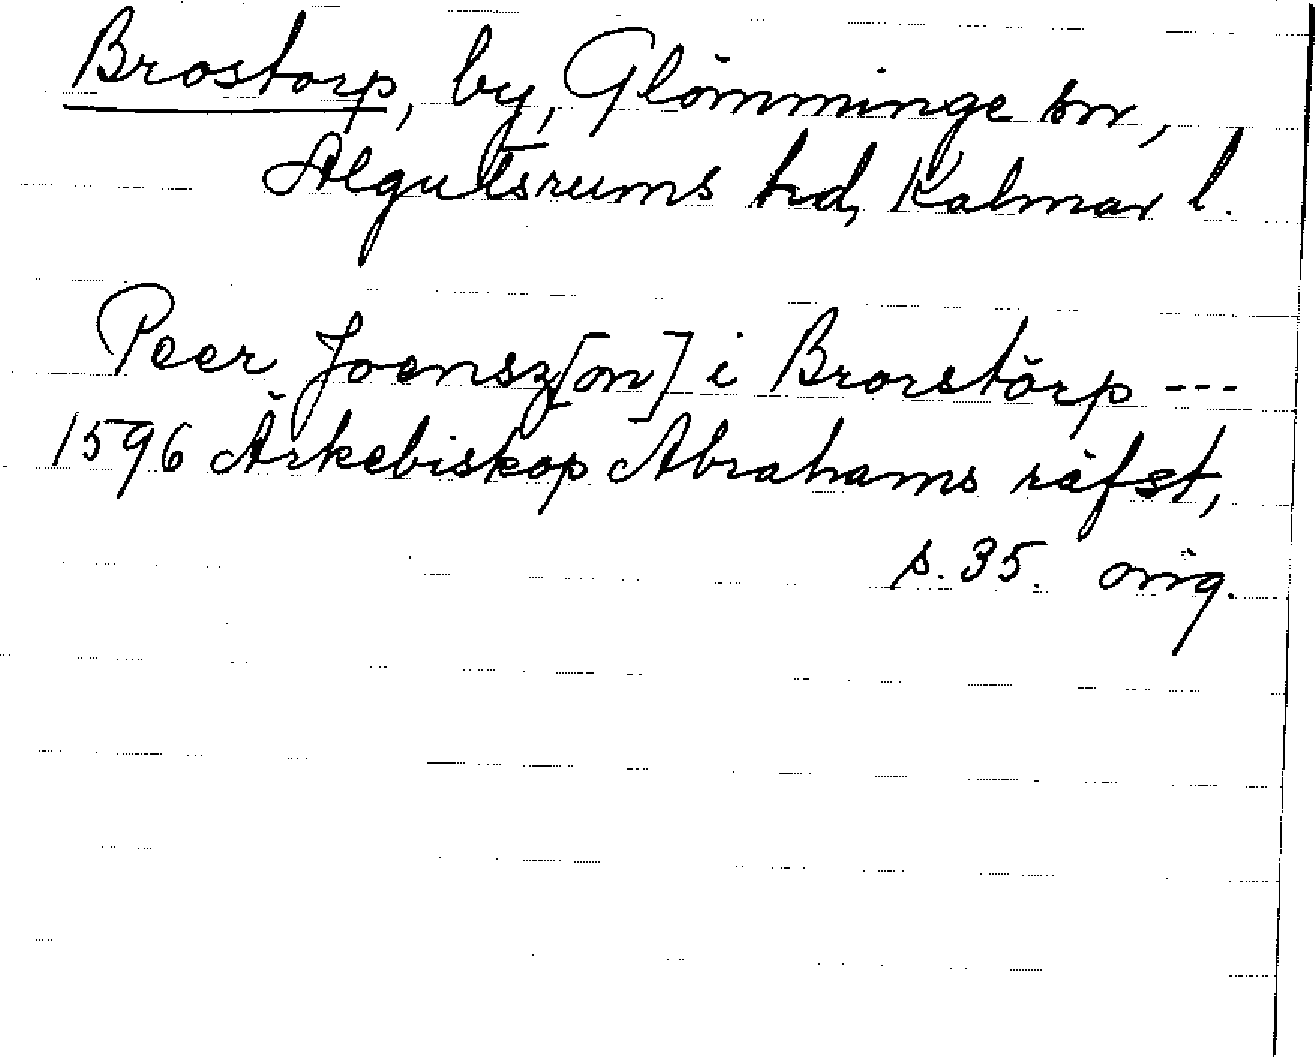 Brostorp, by, Glömminge sn,
Algutsrums hd, Kalmar l.
Peer Joensz[on] i Brorstörp ---
1596 Ärkebiskop Abrahams räfst,
s. 35. orig.